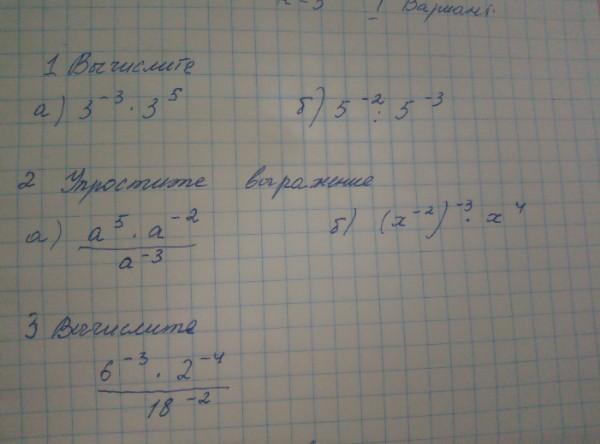 1 Вариант.
1 Вычислите
а) 3⁻³ · 3⁵ б) 5⁻² : 5⁻³
2 Упростите выражение
а) a⁵ · a⁻² / a⁻³ б) (x⁻²)⁻³ · x⁴
3 Вычислите
6⁻³ · 2⁻⁴ / 18⁻²